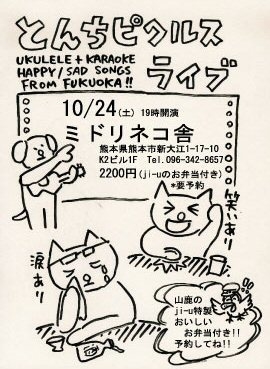 とんちピクルス
UKULELE + KARAOKE
HAPPY/SAD SONGS
FROM FUKUOKA!!
ライブ
10/24(土) 19時開演
ミドリネコ舎
熊本県熊本市新大江1-17-10
K2ビル1F Tel.096-342-8657
2200円(ji-uのお弁当付き)
*要予約
笑いあり
涙あり
山鹿の
ji-u特製
おいしい
お弁当付き!!
予約してね!!